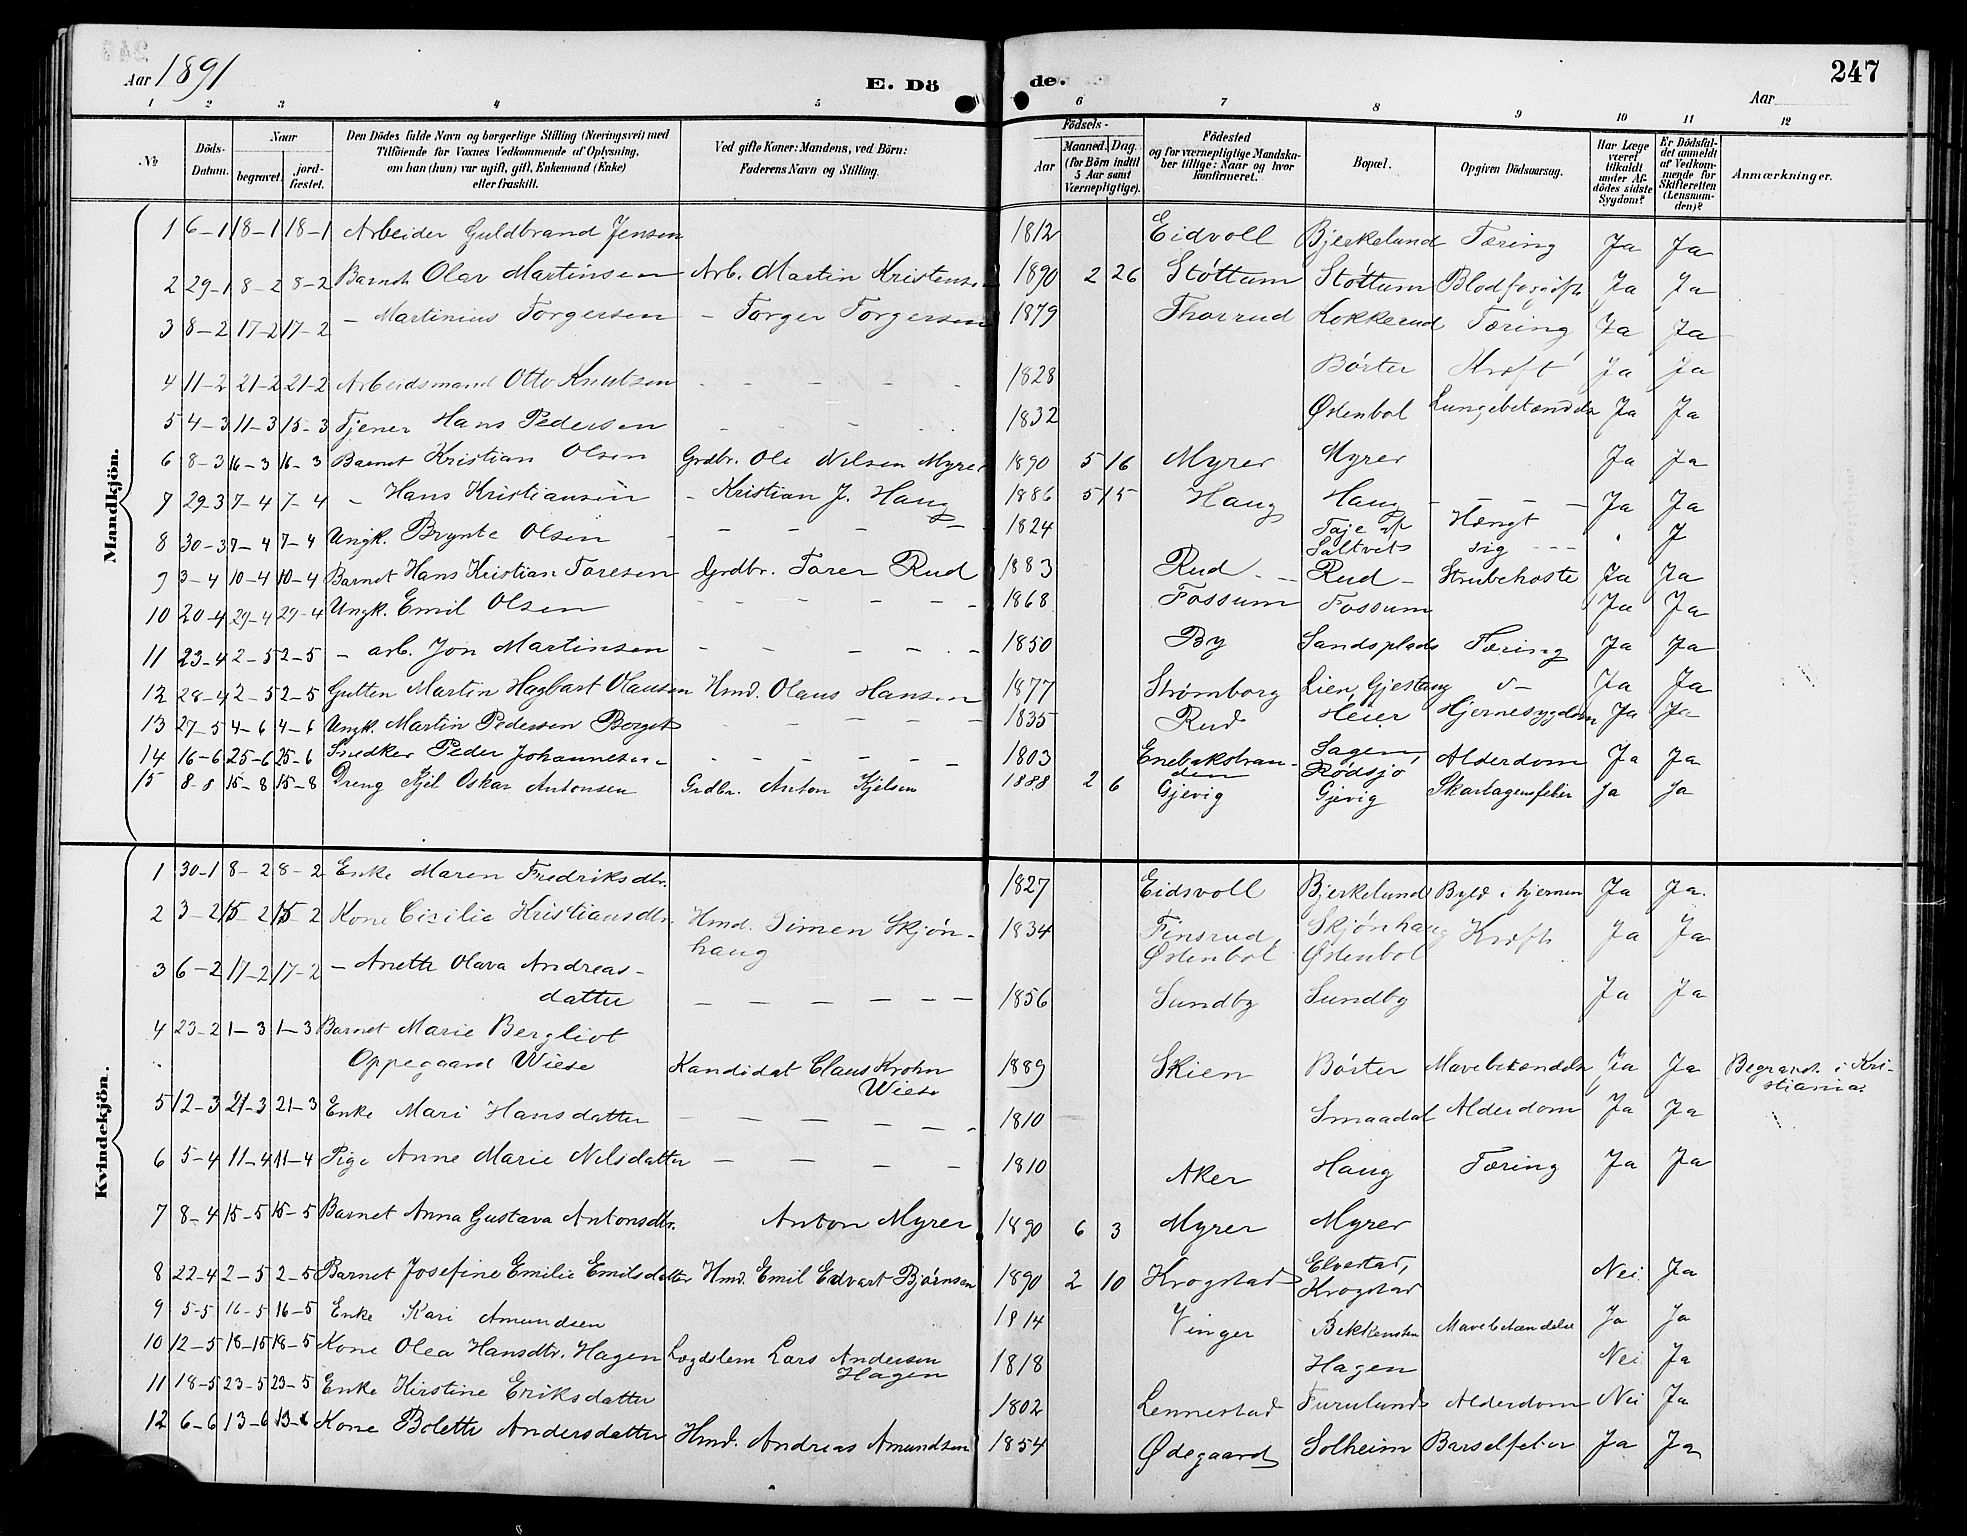 Aar 1891
E. Dö
de.
247
Aar
1 2 3 4 5 6 7 8 9 10 11 12
No
Döds-Datum.
Naar
begravet.
jord-fæstet.
Den Dödes fulde Navn og borgerlige Stilling (Næringsvei) med
Tilföiende for Voxnes Vedkommende af Oplysning,
om han (hun) var ugift, gift, Enkemand (Enke)
eller fraskilt.
Ved gifte Koner: Mandens, ved Börn:
Faderens Navn og Stilling.
Födsels-
Aar
Maaned. Dag.
(for Börn indtil
5 Aar samt
Værnepligtige).
Födested
og for værnepligtige Mandska-
ber tillige: Naar og hvor
konfirmeret.
Bopæl.
Opgiven Dödsaarsag.
Har Læge
været
tilkaldt
under Af-
dödes sidste
Sygdom?
Er Dödsfal-
det anmeldt
af Vedkom-
mende for
Skifteretten
(Lensman-
den)?
Anmærkninger.
Mandkjön.
1 6-1 18-1 18-1 Arbeider Guldbrand Jensen 1812 Eidvoll Bjerkelund Tæring Ja Ja
2 29-1 8-2 8-2 Barnet Olav Martinsen Arb. Martin Kristensen 1890 2 26 Støttum Støttum Blodforgift Ja Ja
3 8-2 17-2 17-2 - Martinius Torgersen - Torger Torgersen 1879 Thorrud Kokkerud Tæring Ja Ja
4 11-2 21-2 21-2 Arbeidsmand Otto Knutsen - - - - - 1828 Börter Kræft Ja Ja
5 4-3 11-3 15-3 Tjener Hans Pedersen - - - - - 1832 Østenbøl Lungebetændelse Ja Ja
6 8-3 16-3 16-3 Barnet Kristian Olsen Grdbr. Ole Nilsen Myrer 1890 5 16 Myrer Myrer Ja Ja
7 29-3 7-4 7-4 - Hans Kristiansen - Kristian J. Haug 1886 5 15 Haug Haug - - - Ja Ja
8 30-3 7-4 7-4 Ungk. Brynte Olsen - - - - - 1824 Taje pf Saltvet Hængt sig - - - J
9 3-4 10-4 10-4 Barnet Hans Kristian Toresen Grdbr. Torer Rud 1883 Rud - - Rud - Strubehoste Ja Ja
10 20-4 29-4 29-4 Ungk. Emil Olsen - - - - - 1868 Fossum Fossum Ja Ja
11 23-4 2-5 2-5 - arb. Jon Martinsen - - - - - 1850 By Sandsplads Tæring Ja Ja
12 28-4 2-5 2-5 Gutten Martin Hagbart Olausen Hmd. Olaus Hansen 1877 Strømborg Lien, Gjestang d- Ja Ja
13 27-5 4-6 4-6 Ungk. Martin Pedersen Berget - - - - - 1835 Rud Heier Hjernesygdom Ja Ja
14 16-6 25-6 25-6 Snedker Peder Johannesen - - - - - 1803 Enebakstranden Sagen, Rödsjö Alderdom Ja Ja
15 8-8 15-8 15-8 Dreng Kjel Oskar Antonsen Grdbr. Anton Kjelsen 1888 2 6 Gjevig Gjevig Skarlagensfeber Ja Ja
Kvindekjön.
1 30-1 8-2 8-2 Enke Maren Fredriksdtr. 1827 Eidsvoll Bjerkelund Byld i hjernen Ja Ja.
2 3-2 15-2 15-2 Kone Cicilie Kristiansdtr. Hmd. Simen Skjön-
haug 1834 Finsrud, Østenbøl Skjönhaug Østenbøl Kræft Ja Ja
3 6-2 17-2 17-2 - Anette Olava Andreas-
datter - - - - - - 1856 Sundby Sundby Ja Ja
4 23-2 1-3 1-3 Barnet Marie Bergliot
Oppegaard Wiese Kandidat Claus Krohn
Wiese 1889 Skien Börter Mavebetændelse Ja Ja Begravet i Kri-
stiania.
5 12-3 21-3 21-3 Enke Mari Hansdatter - - - - - - 1810 Smaadal Alderdom Ja Ja
6 5-4 11-4 11-4 Pige Anne Marie Nilsdatter - - - - 1810 Aker Haug Tæring Ja Ja
7 8-4 15-5 15-5 Barnet Anna Gustava Antonsdtr. Anton Myrer 1890 6 3 Myrer Myrer
8 22-4 2-5 2-5 Barnet Josefine Emilie Emilsdatter Hmd. Emil Edvart Bjørnsen 1890 2 10 Krogstad Elvestad, Krogstad Nei Ja
9 5-5 16-5 16-5 Enke Kari Amundsen 1814 Vinger Bekkensten Mavebetændelse Ja Ja
10 12-5 18-15 18-5 Kone Olea Hansdtr. Hagen Lægdslem Lars Andersen
Hagen 1818 Hagen Nei Ja
11 18-5 23-5 23-5 Enke Kirstine Eriksdatter 1802 Lennestad Furulund Alderdom Nei Ja
12 6-6 13-6 13-6 Kone Bolette Andersdatter Hmd. Andreas Amundsen 1854 Ødegaard Solheim Barselfeber Ja Ja